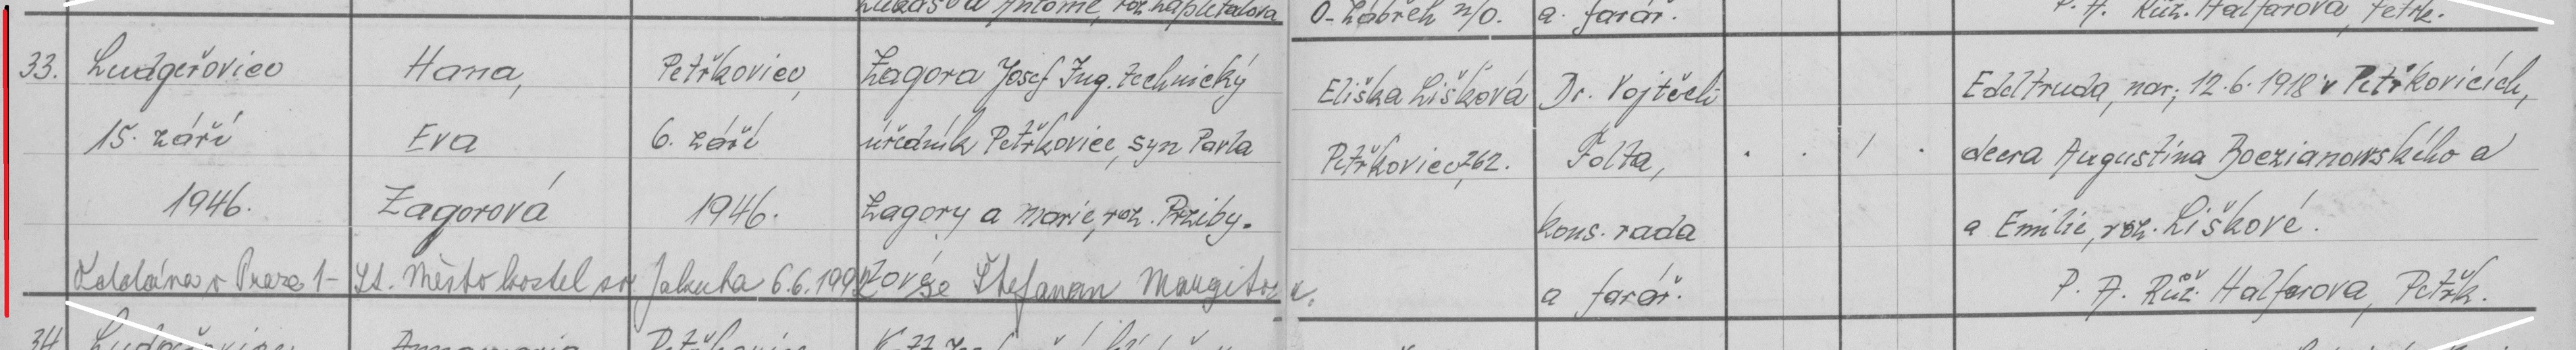 Lukášová Antonie, roz. Zapletalová
O-Zábřeh n/O.
a. farář.
P. A. Růž. Halfarova, Petřk.
33. Ludgeřovice
15. září
1946.
Hana,
Eva
Zagorová
Petřkovice,
6. září
1946.
Zagora Josef Ing. technický
úředník Petřkovice, syn Pavla
Zagory a Marie, roz. Prziby-
zové
Eliška Lišková
Petřkovice, 262.
Dr. Vojtěch
Folta,
kons. rada
a farář.
1
Edeltruda, nar; 12.6.1918 v Petřkovicích,
dcera Augustina Boczianowského a
a Emilie, roz. Liškové.
P. A. Růž. Halfarova, Petřk.
Oddána v Praze 1- St. Město kostel sv Jakuba 6.6.1992 se Štefanem Margitou.
34.